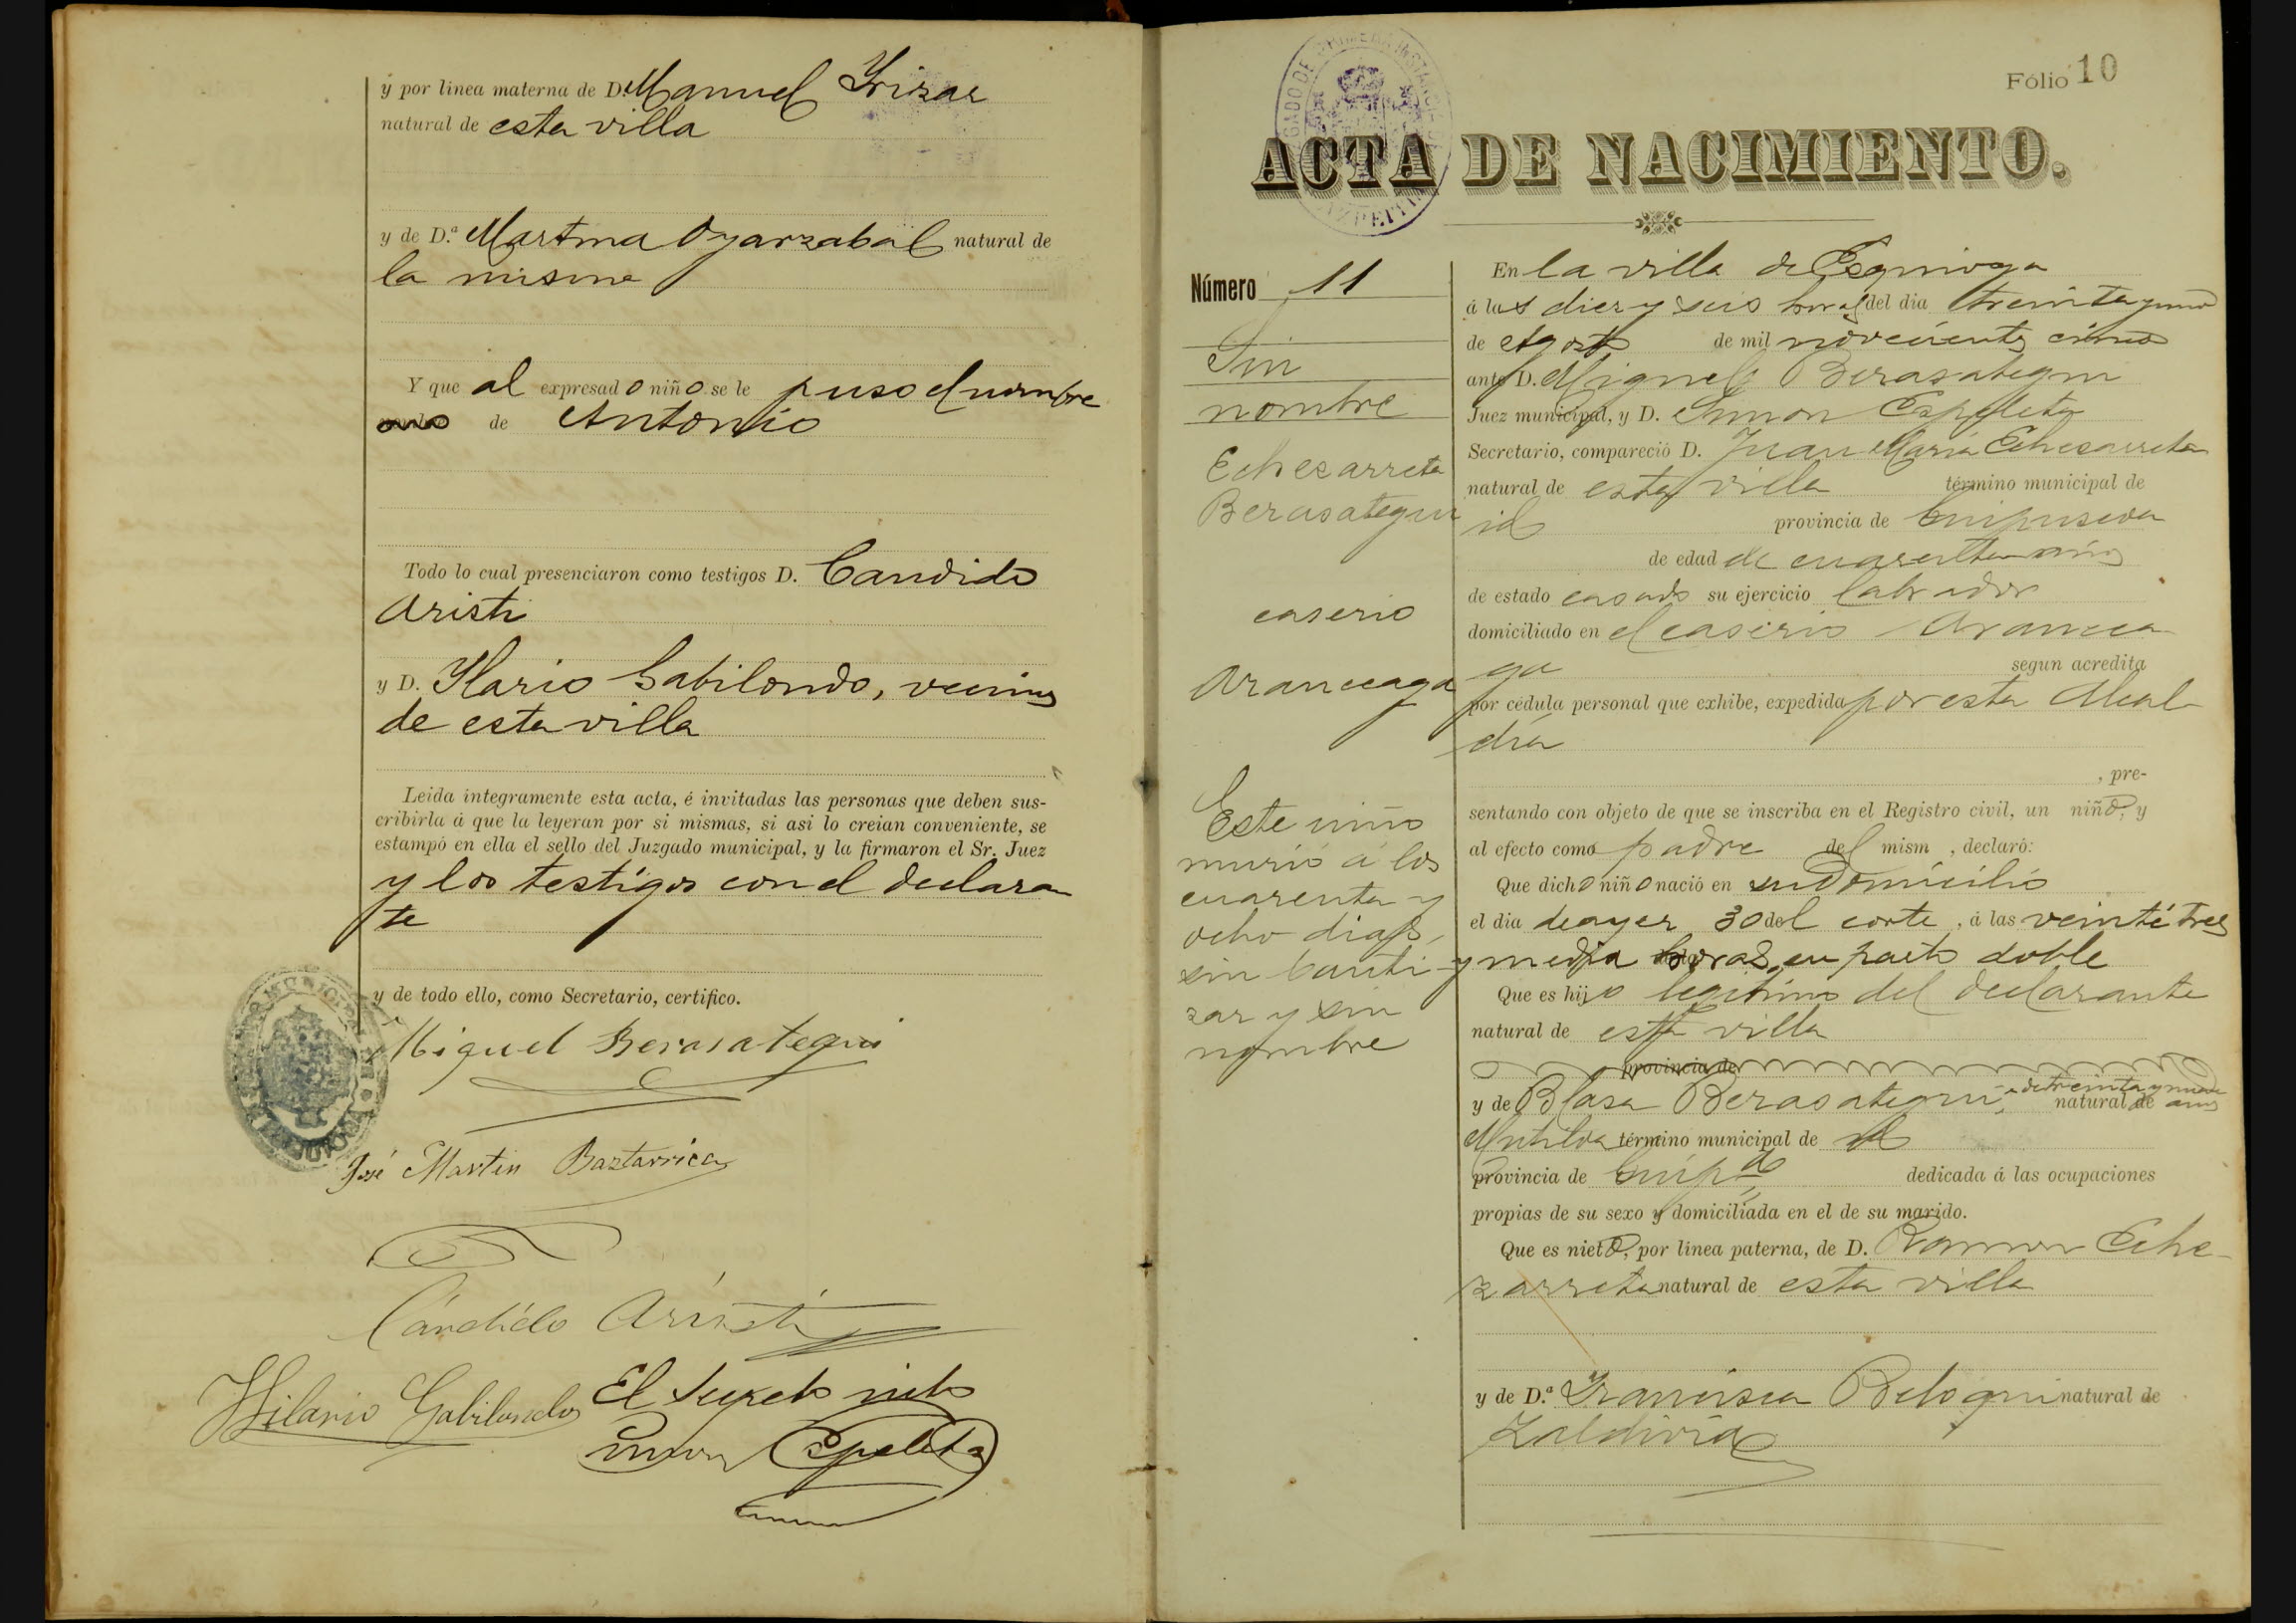 y por linea materna de D. Manuel Yrizar
natural de esta villa
y de D.ª Martina Oyarzabal natural de
la misma
Y que al expresado niño se le puso el nombre
de Antonio
Todo lo cual presenciaron como testigos D. Candido
Aristi
y D. Ylario Gabilondo, vecinos
de esta villa
Leida integramente esta acta, é invitadas las personas que deben sus-
cribirla á que la leyeran por si mismas, si asi lo creian conveniente, se
estampó en ella el sello del Juzgado municipal, y la firmaron el Sr. Juez
y los testigos con el declaran
te
y de todo ello, como Secretario, certifico.
Miguel Berasategui
José Martin Baztarrica
Cándido Aristi
Hilario Gabilondo
El Secreto
Simon Espeleta
Fólio 10
ACTA DE NACIMIENTO.
Número 11
Sin
nombre
Echezarreta
Berasategui
caserio
Aranceaga
Este niño
murió á los
cuarenta y
ocho dias,
sin bauti
zar y sin
nombre
En la villa de Ezquioga
á las diez y seis horas del dia treinta y uno
de Agosto de mil novecientos cinco
ante D. Miguel Berasategui
Juez municipal, y D. Simon Espeleta
Secretario, compareció D. Juan Maria Echezarreta
natural de esta villa término municipal de
id provincia de Guipuzcoa
de edad de cuarenta años
de estado casado su ejercicio labrador
domiciliado en el caserio Arancea
ga segun acredita
por cédula personal que exhibe, expedida por esta Alcal
dia
, pre-
sentando con objeto de que se inscriba en el Registro civil, un niño, y
al efecto como padre del mism , declaró:
Que dicho niño nació en su domicilio
el dia de ayer 30 del corte, á las veintitres
y media horas, en parto doble
Que es hijo legitimo del declarante
natural de esta villa
provincia de
y de Blasa Berasategui, de treinta y nueve años natural de
Mutiloa término municipal de id
provincia de Guip.ª dedicada á las ocupaciones
propias de su sexo y domiciliada en el de su marido.
Que es nieto, por linea paterna, de D. Ramon Eche-
zarreta natural de esta villa
y de D.ª Francisca Beloqui natural de
Zaldivia